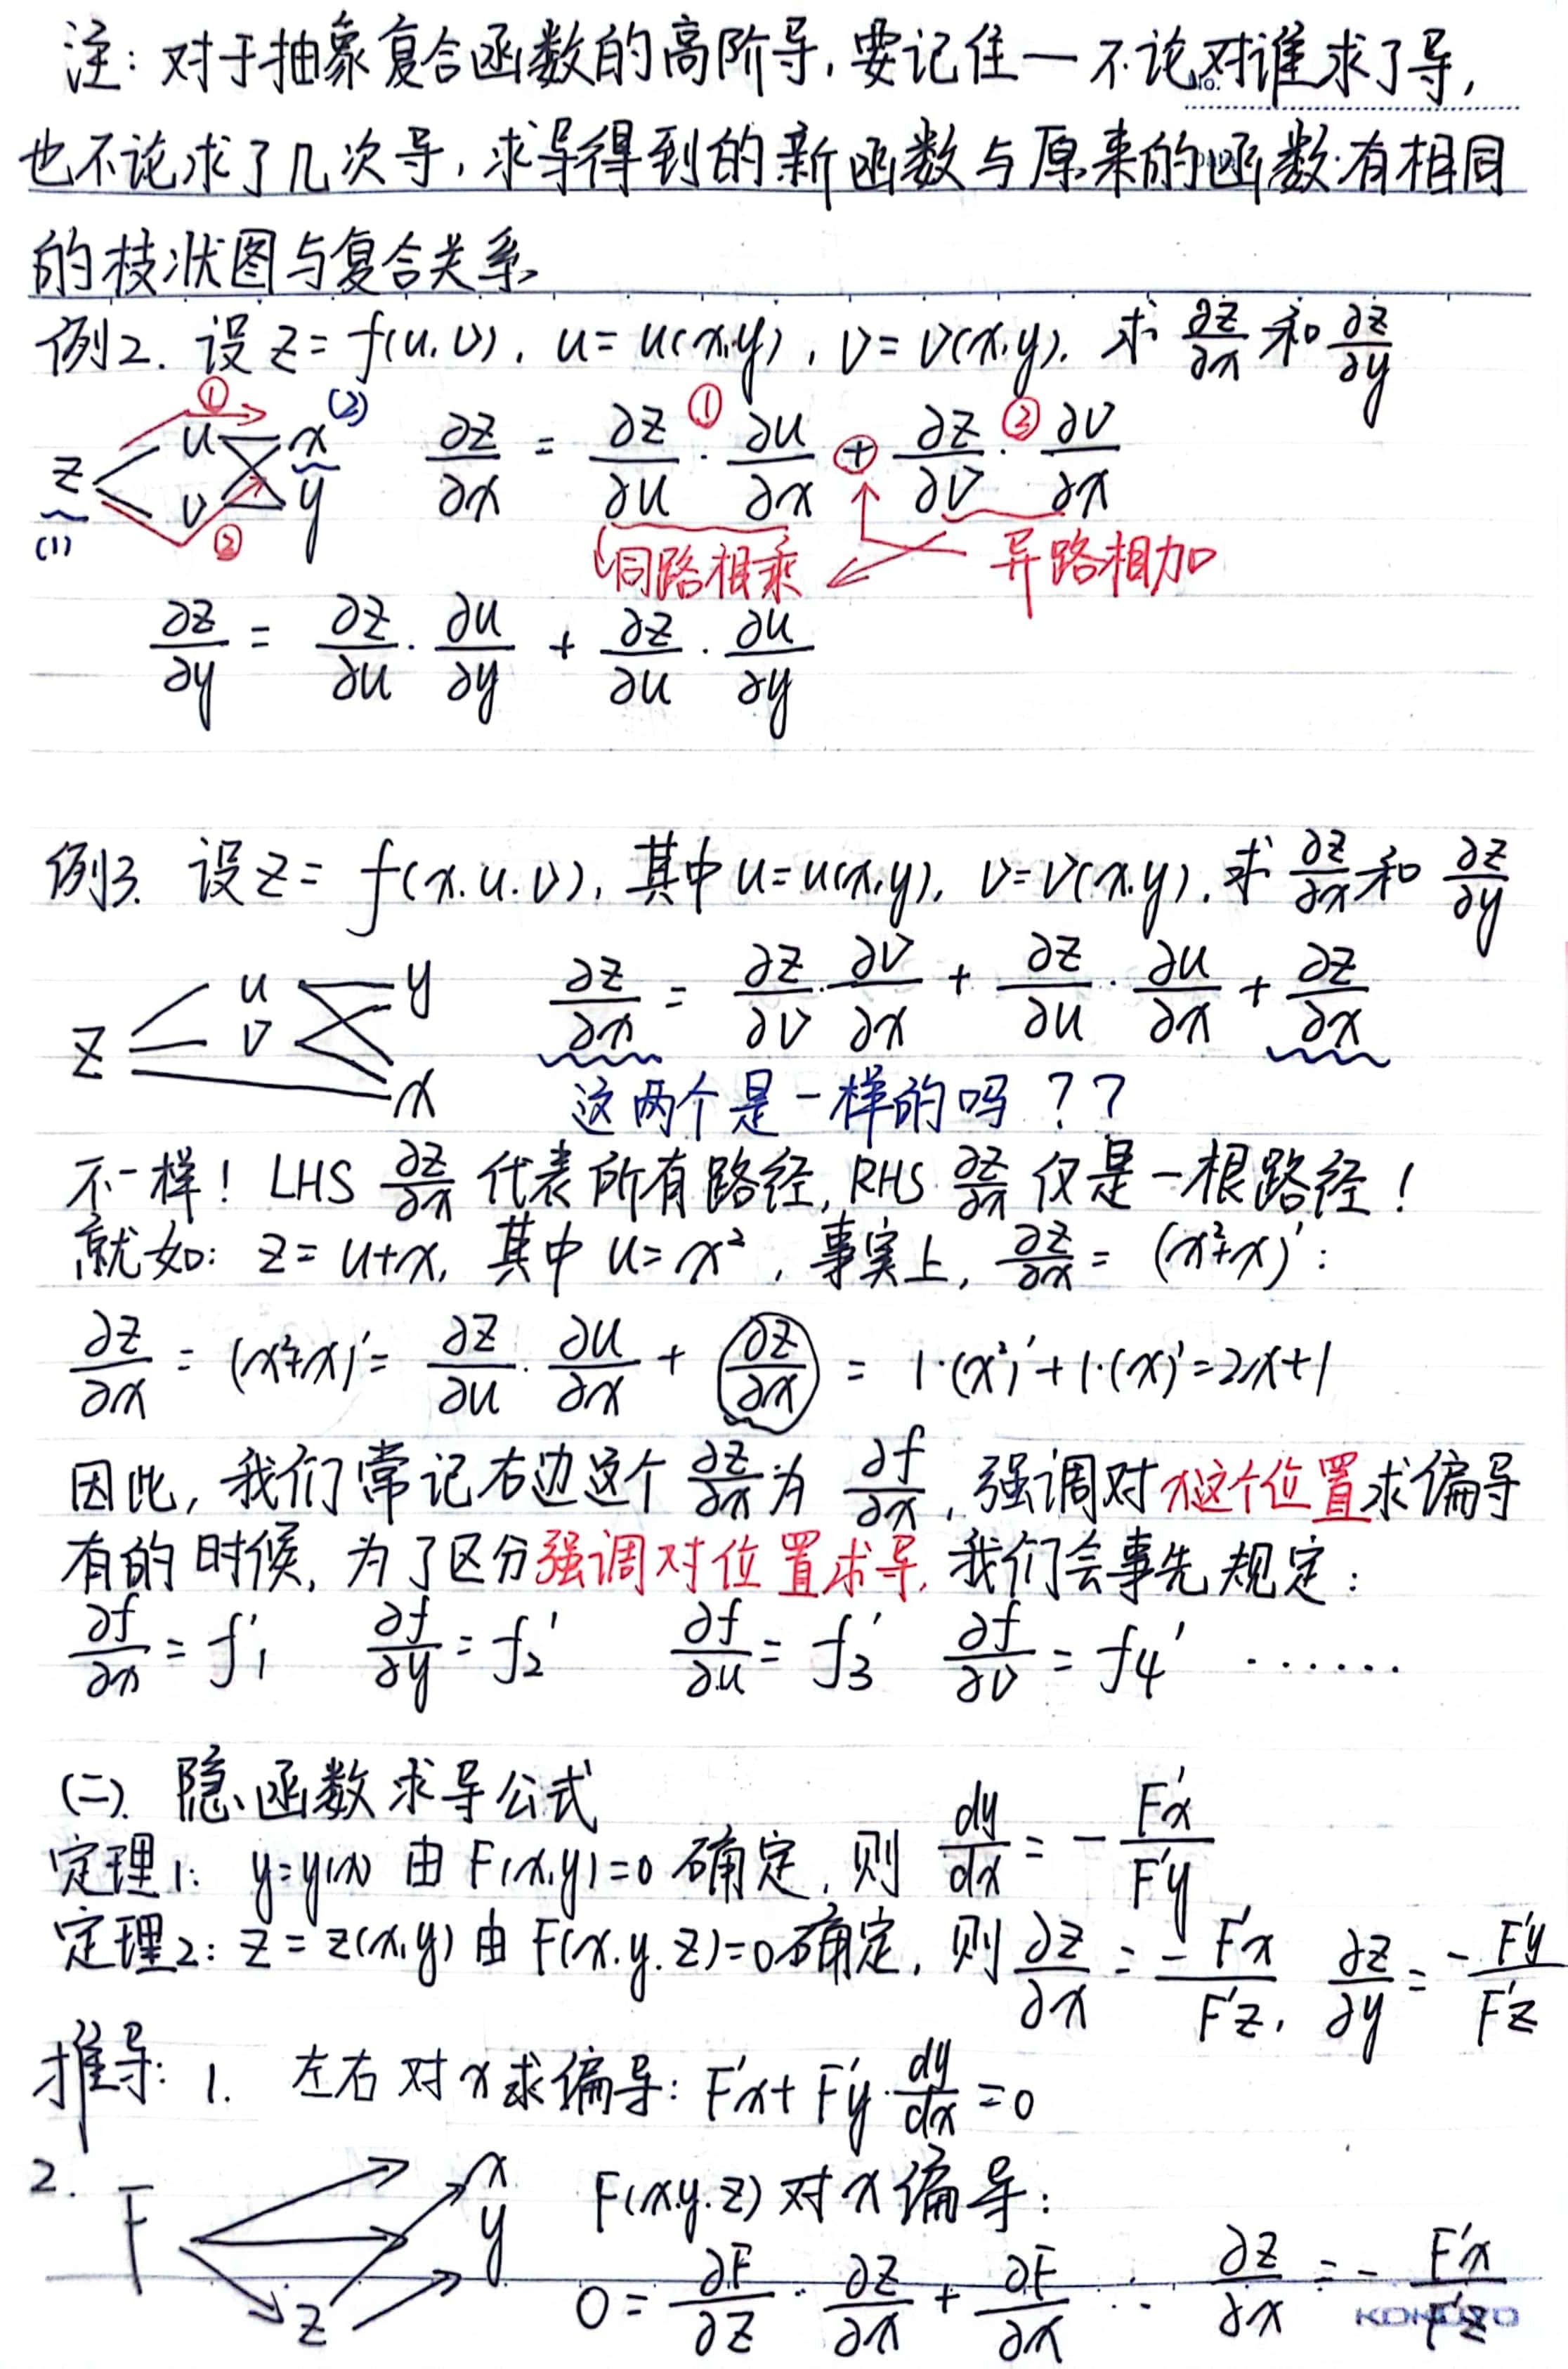 注：对于抽象复合函数的高阶导，要记住一不论对谁求了导，
也不论求了几次导，求导得到的新函数与原来的函数有相同
的枝状图与复合关系
例2. 设 z = f(u.v), u = u(x,y), v = v(x,y). 求 ∂z/∂x 和 ∂z/∂y
① (2)
z u v x y
(1) ②
∂z/∂x = ∂z/∂u ① · ∂u/∂x + ∂z/∂v ② · ∂v/∂x
同路相乘 异路相加
∂z/∂y = ∂z/∂u · ∂u/∂y + ∂z/∂u · ∂u/∂y
例3. 设 z = f(x.u.v), 其中 u=u(x,y), v=v(x.y). 求 ∂z/∂x 和 ∂z/∂y
z u v y x
∂z/∂x = ∂z/∂v · ∂v/∂x + ∂z/∂u · ∂u/∂x + ∂z/∂x
这两个是一样的吗？？
不一样！LHS ∂z/∂x 代表所有路径，RHS ∂z/∂x 仅是一根路径！
就如：z = u+x, 其中 u = x², 事实上, ∂z/∂x = (x²+x)′：
∂z/∂x = (x²+x)′ = ∂z/∂u · ∂u/∂x + ∂z/∂x = 1·(x²)′+1·(x)′=2x+1
因此，我们常记右边这个 ∂z/∂x 为 ∂f/∂x, 强调对x这个位置求偏导
有的时候，为了区分强调对位置求导, 我们会事先规定：
∂f/∂x = f₁′ ∂f/∂y = f₂′ ∂f/∂u = f₃′ ∂f/∂v = f₄′ ······
(二). 隐函数求导公式
定理1: y=y(x) 由 F(x,y)=0 确定, 则 dy/dx = - F′x/F′y
定理2: z = z(x,y) 由 F(x.y.z)=0 确定, 则 ∂z/∂x = - F′x/F′z, ∂z/∂y = - F′y/F′z
推导: 1. 左右对x求偏导: F′x + F′y · dy/dx = 0
2. F x y z
F(x.y.z) 对x偏导：
0 = ∂F/∂z · ∂z/∂x + ∂F/∂x ∴ ∂z/∂x = - F′x/F′z